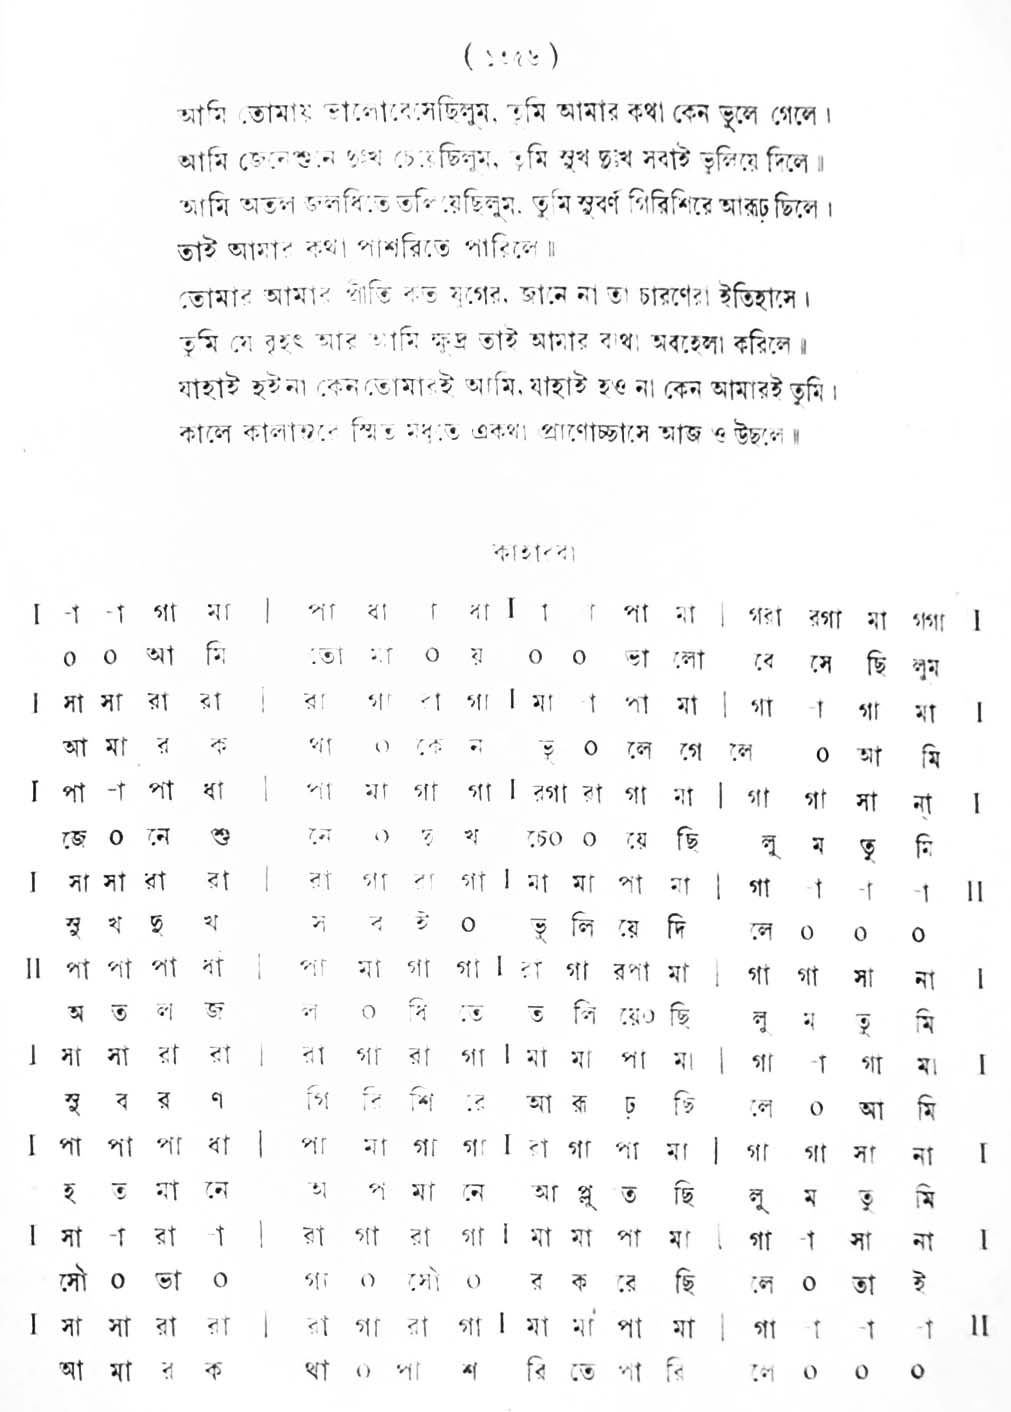 ( ১৩৫৬ )
আমি তোমায় ভালোবেসেছিলুম, তুমি আমার কথা কেন ভুলে গেলে।
আমি জেনেশুনে দুঃখ চেয়েছিলুম, তুমি সুখ দুঃখ সবাই ভুলিয়ে দিলে॥
আমি অতল জলধিতে তলিয়েছিলুম, তুমি সুবর্ণ গিরিশিরে আরূঢ় ছিলে।
তাই আমার কথা পাশরিতে পারিলে॥
তোমার আমার প্রীতি কত যুগের, জানে না তা চারণেরা ইতিহাসে।
তুমি যে বৃহৎ আর আমি ক্ষুদ্র তাই আমার ব্যথা অবহেলা করিলে॥
যাহাই হইনা কেন তোমারই আমি, যাহাই হও না কেন আমারই তুমি।
কালে কালান্তরে স্মিত মধুতে একথা প্রাণোচ্ছাসে আজ ও উছলে॥
কাহারবা
I -া -া গা মা | পা ধা া ধা I া া পা মা | গরা রগা মা গগা I
০ ০ আ মি তো মা ০ য় ০ ০ ভা লো বে সে ছি লুম
I সা সা রা রা | রা গা রা গা I মা া পা মা | গা -া গা মা I
আ মা র ক থা ০ কে ন ভু ০ লে গে লে ০ আ মি
I পা -া পা ধা | পা মা গা গা I রগা রা গা মা | গা গা সা না I
জে ০ নে শু নে ০ দু খ চে০ ০ য়ে ছি লু ম তু মি
I সা সা রা রা | রা গা রা গা I মা মা পা মা | গা -া -া -া II
সু খ দু খ স ব ই ০ ভু লি য়ে দি লে ০ ০ ০
II পা পা পা ধা | পা মা গা গা I রা গা রপা মা | গা গা সা না I
অ ত ল জ ল ০ ধি তে ত লি য়ে০ ছি লু ম তু মি
I সা সা রা রা | রা গা রা গা I মা মা পা মা | গা -া গা মা I
সু ব র ণ গি রি শি রে আ রূ ঢ় ছি লে ০ আ মি
I পা পা পা ধা | পা মা গা গা I রা গা পা মা | গা গা সা না I
হ ত মা নে অ প মা নে আ প্লু ত ছি লু ম তু মি
I সা -া রা -া | রা গা রা গা I মা মা পা মা | গা -া সা না I
সৌ ০ ভা ০ গ্য ০ সৌ ০ র ক রে ছি লে ০ তা ই
I সা সা রা রা | রা গা রা গা I মা মা পা মা | গা -া -া -া II
আ মা র ক থা ০ পা শ রি তে পা রি লে ০ ০ ০